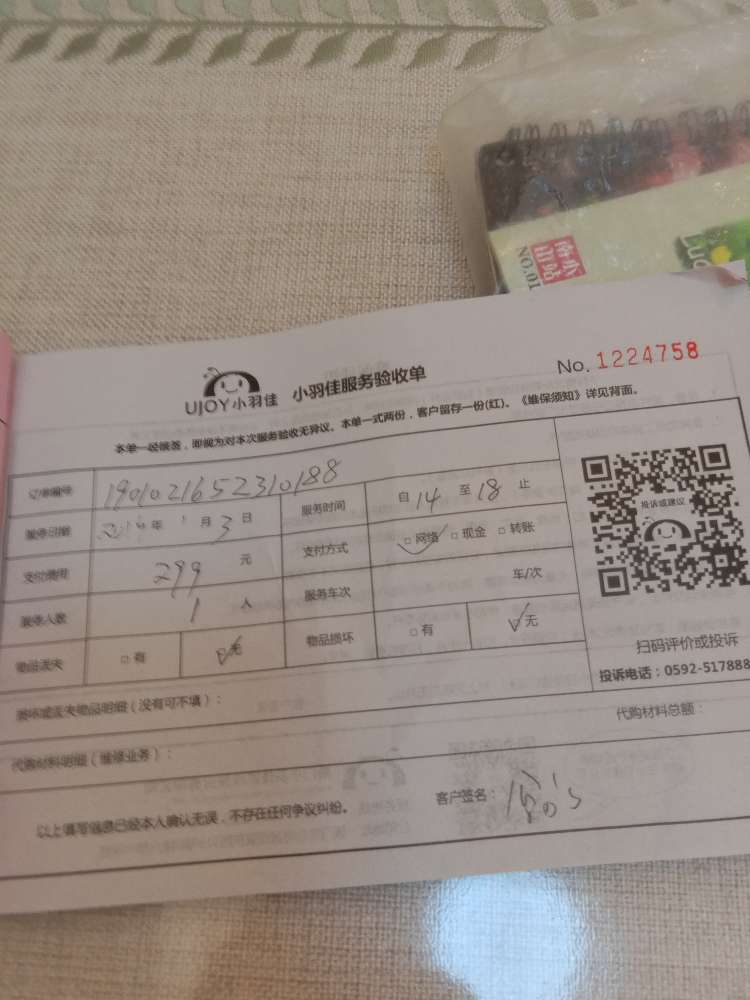 南小
山站
NO.01
LUC
No. 1224758
UJOY小羽佳 小羽佳服务验收单
本单一经签名，即视为对本次服务验收无异议。本单一式两份，客户留存一份(红)。《维保须知》详见背面。
订单编号 1901021652310188 服务时间 自 14 至 18 止
服务日期 2019年 1 月 3 日 支付方式 □网络 □现金 □转账
支付费用 299 元 服务车次 车/次
服务人数 1 人 物品损坏 □有 □无
物品丢失 □有 □无
投诉或建议
扫码评价或投诉
投诉电话：0592-517888
损坏或丢失物品明细（没有可不填）：
代购材料明细（维修业务）： 代购材料总额：
以上填写信息已经本人确认无误，不存在任何争议纠纷。 客户签名：